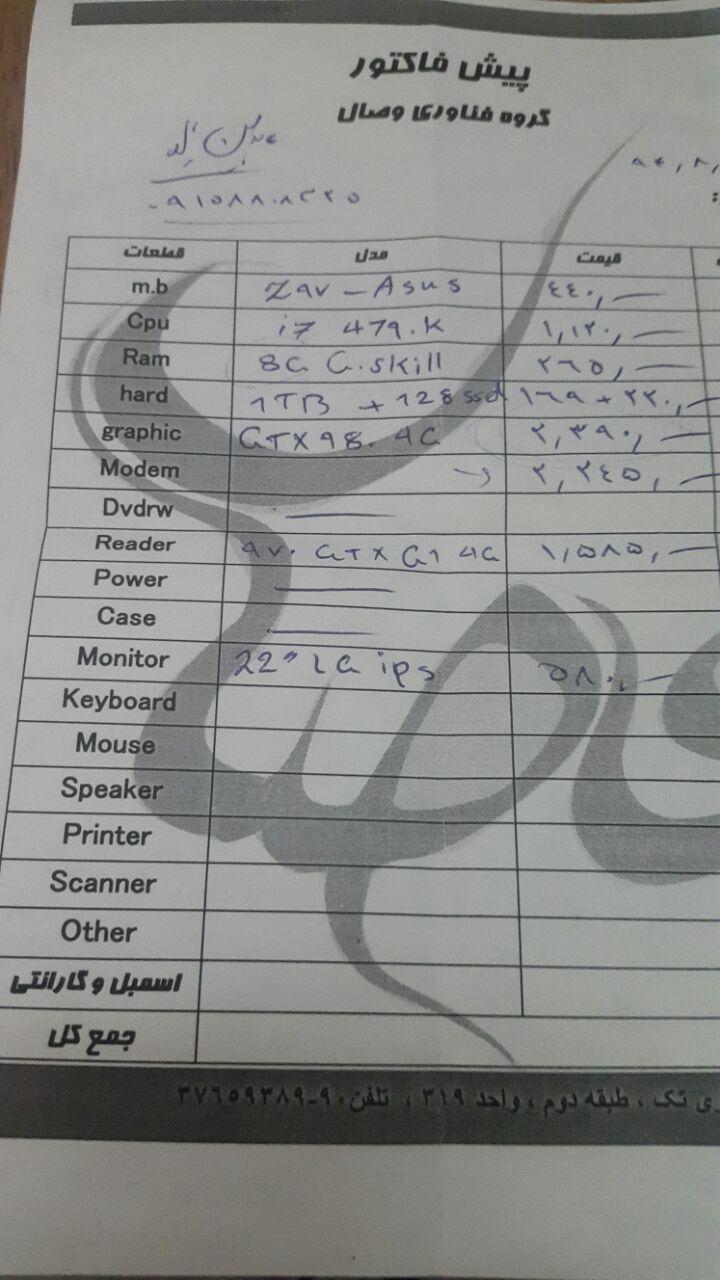 پیش فاکتور
گروه فناوری وصال
۹۴,۸,
۰۹۱۵۸۸۰۸۳۲۵
قطعات مدل قیمت
m.b Z۹۷ - Asus ۴۴۰,—
Cpu i7 479.K ۱,۱۲۰,—
Ram 8G G.skill ۲۶۵,—
hard 1TB + 128 ssd ۱۶۹ + ۲۲۰,—
graphic GTX 98. 4G ۲,۳۹۰,—
Modem ۲,۲۴۵,—
Dvdrw —
Reader ۹۷۰ GTX G1 4G ۱,۵۸۵,—
Power —
Case —
Monitor 22" LG ips ۵۸۰,—
Keyboard
Mouse
Speaker
Printer
Scanner
Other
اسمبل و گارانتی
جمع کل
ی تک ، طبقه دوم ، واحد ۳۱۹ ، تلفن: ۹۰-۳۷۶۵۹۳۸۹